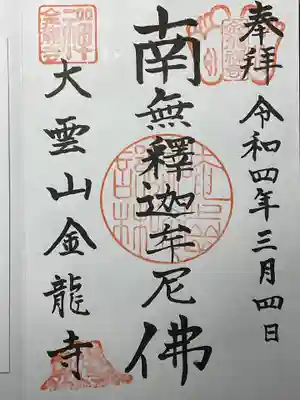 奉拝 令和四年三月四日
南無釋迦牟尼佛
大雲山金龍寺